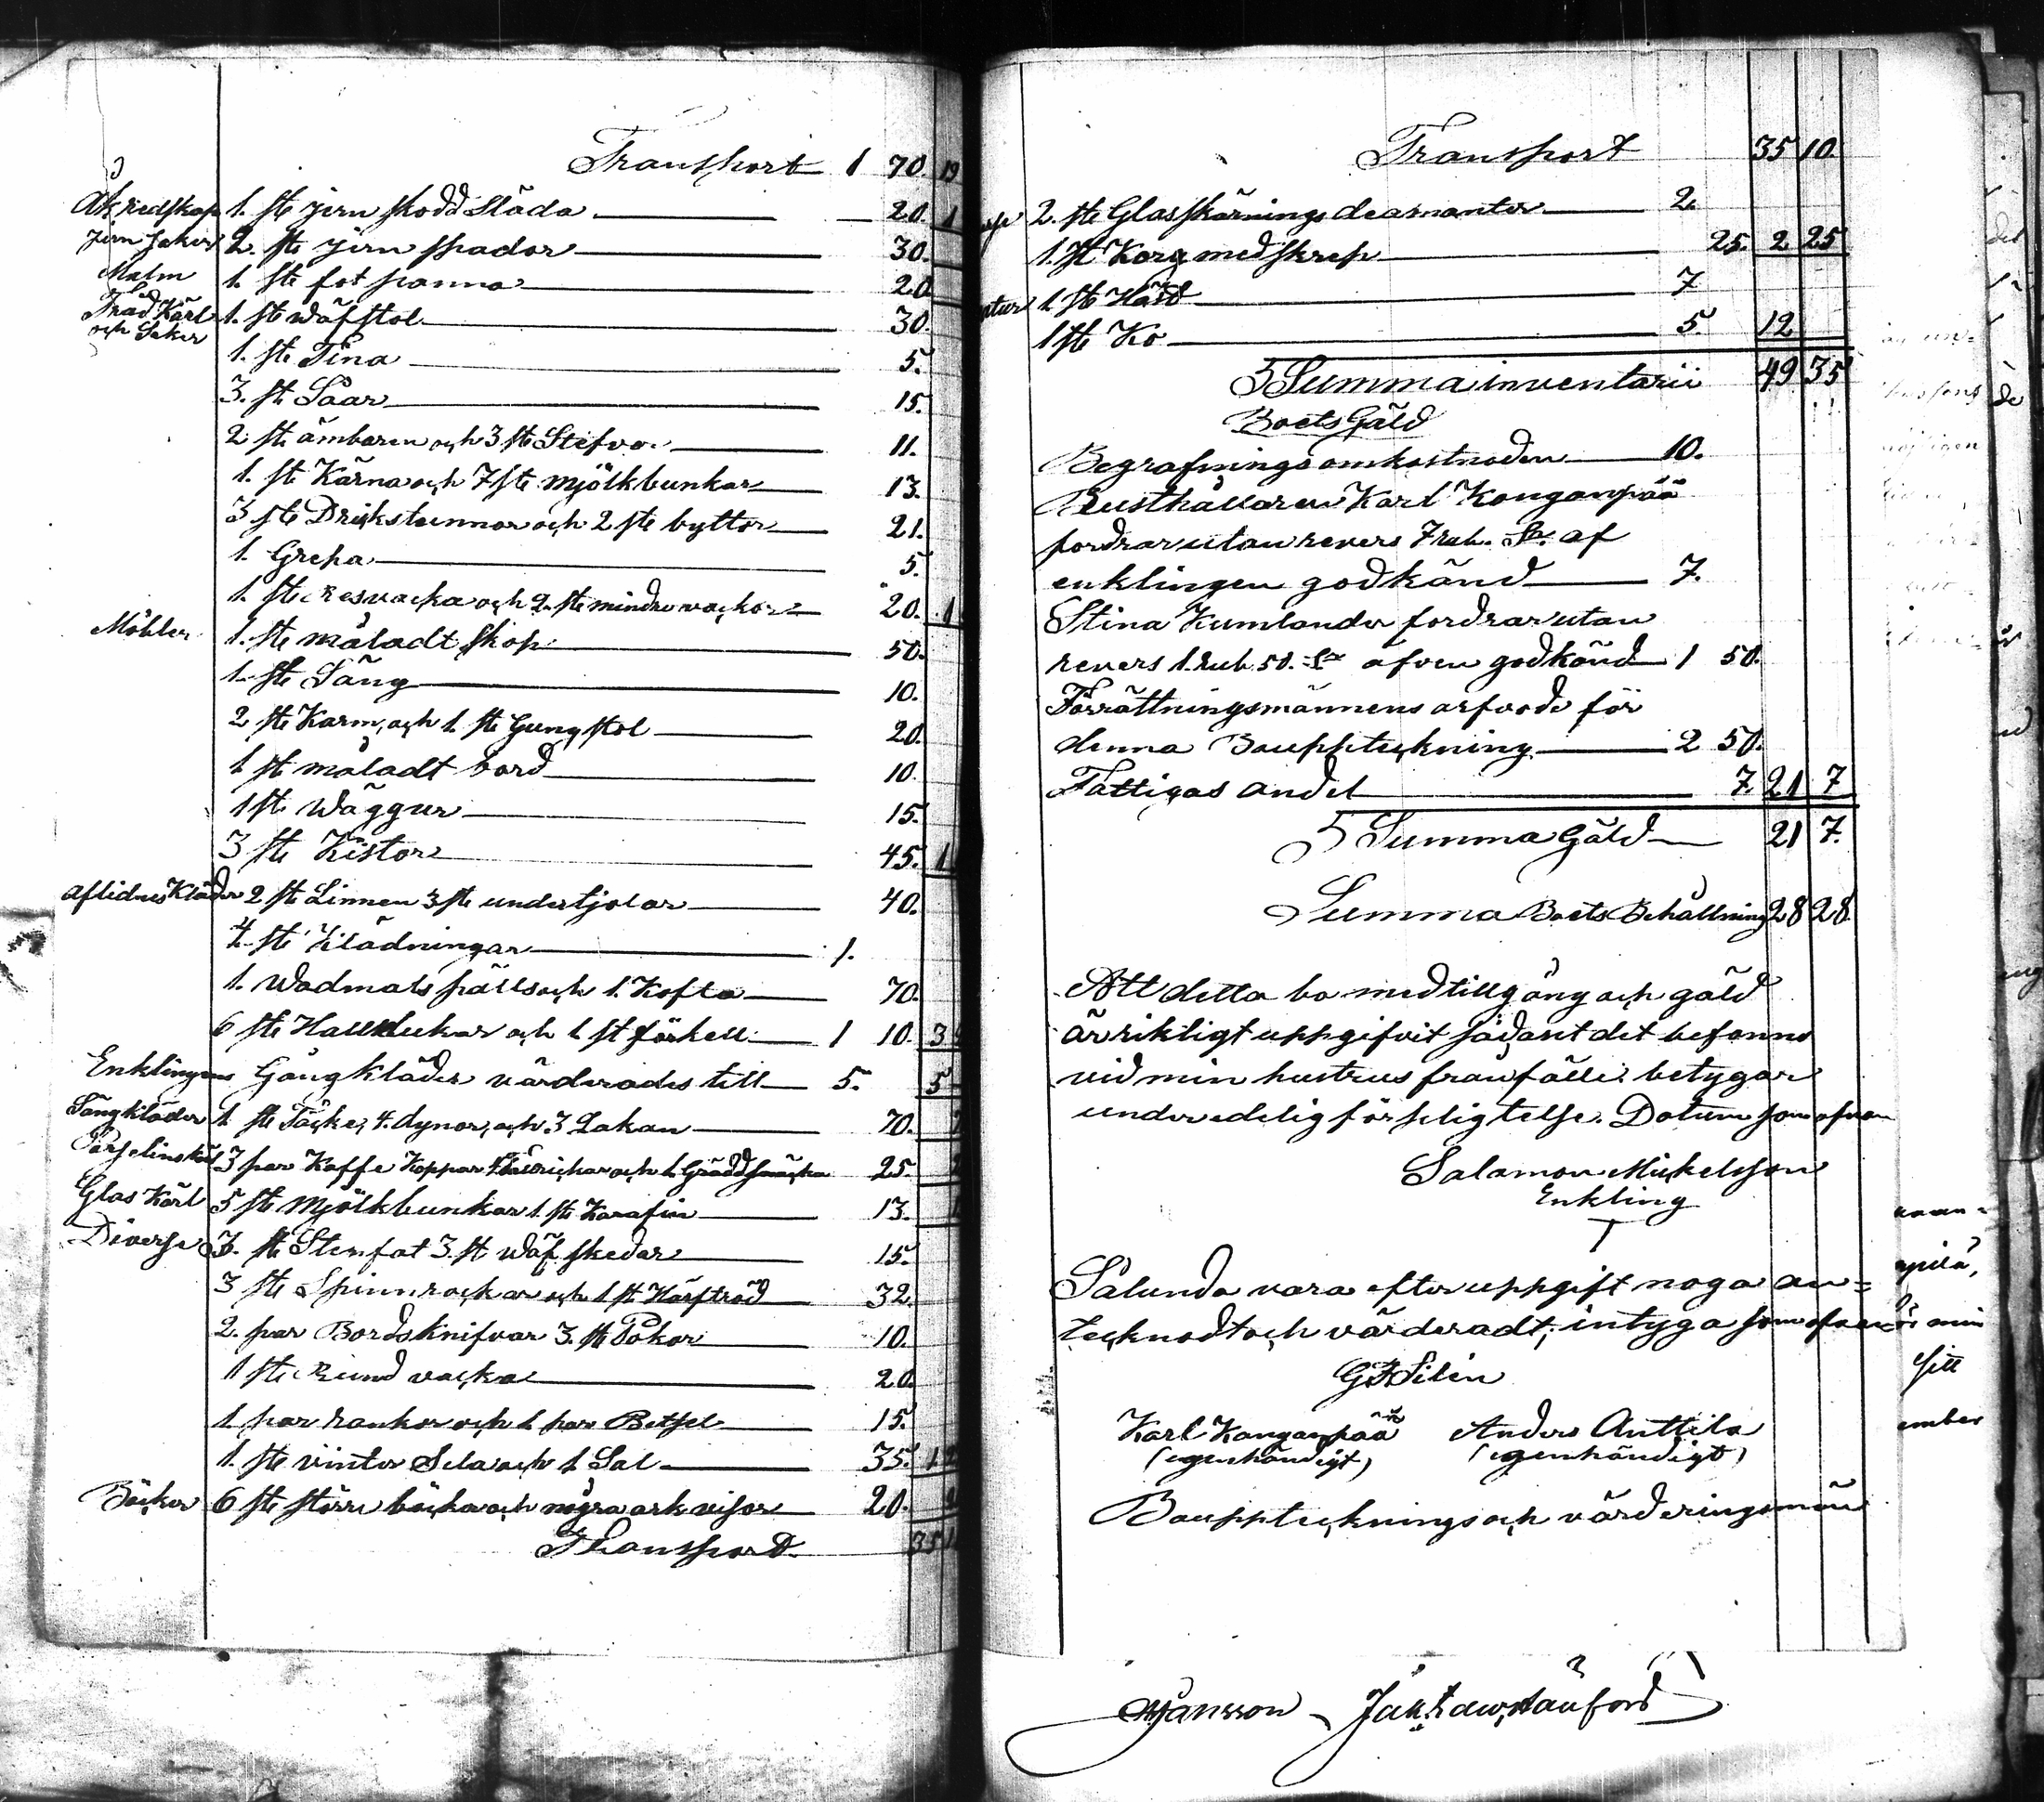 Transport 1 70. 19
Åkredskap 1. st jernskodd Släda 20. 1
Jern saker 2. st jern spador 30.
Malm 1. st fot panna 20
Träd Kärl 1. st wäfstol 30.
och Saker
1. st Tina 5.
3. st Såar 15.
2 st ämbaren och 3 st Stefvor 11.
1. st Kärna och 7 st mjölkbunkar 13.
3 st Drickstunnor och 2 st byttor 21.
1. Grepa 5.
1. st resvacka och 2. st mindre vackor 20. 1
Möbler 1. st måladt skåp 50.
1. st Säng 10.
2 st Karm, och 1. st Gungstol 20.
1 st måladt bord 10.
1 st wäggur 15.
3 st Kistor 45. 1
aflidnes Kläder 2 st Linnen 3 st undertjolar 40.
4. st Klädningar 1.
1. wadmals pälls och 1. Kofta 70.
6 st Hallsdukar och 1 st förkell 1 10. 3
Enklingens Gångkläder värderades till 5. 5
Sängkläder 1 st Täcke, 4. dynor, och 3 Lakan 70.
3 par Kaffe Koppar och 1. Gräddsnäcka 25.
Glas Kärl 5 st Mjölkbunkar 1. st Karafin 13.
Diverse 3. st Stenfat 3. st wäfskedar 15.
3 st Spinnrockar och 1 st Härfträd 32.
2. par Bordsknifvar 3. st Påkar 10.
1 st Rund vacka 20.
1 par rankor och 1 par Betsel 15.
1. st vinter Sela och 1 Sal 35. 1
Böcker 6 st större böcker och några ark visor 20.
Transport 35 1
Transport 35 10.
2. st Glasskärnings deamanter 2.
1. st Korg med skrep 25. 2 25
1 st Häst 7
1 st Ko 5. 12
Summa inventarii 49 35
Boets Gäld
Begrafningsomkostnaden 10.
Rusthållaren Karl Kanganpää
fordrar utan revers 7 rub. Sr. af
enklingen godkänd 7.
Stina Kumlander fordrar utan
revers 1. rub 50. Sr äfven godkänd 1 50.
Förrättningsmännens arfvode för
denna Bouppteckning 2 50.
Fattigas andel 7. 21 7
Summa Gäld 21 7.
Summa Boets Behållning 28 28.
Att detta bo med tillgång och gäld
är riktigt uppgifvit sådant det befanns
vid min hustrus frånfälle betygar
under edelig förpligtelse. Datum som ofvan
Salamon Mickelsson
Enkling
Sålunda vara efter uppgift noga an=
tecknadt och värderadt, intyga som ofvan
Karl Kanganpää Anders Anttila
(egenhändigt) (egenhändigt)
Bouppteckings och värderingsmän